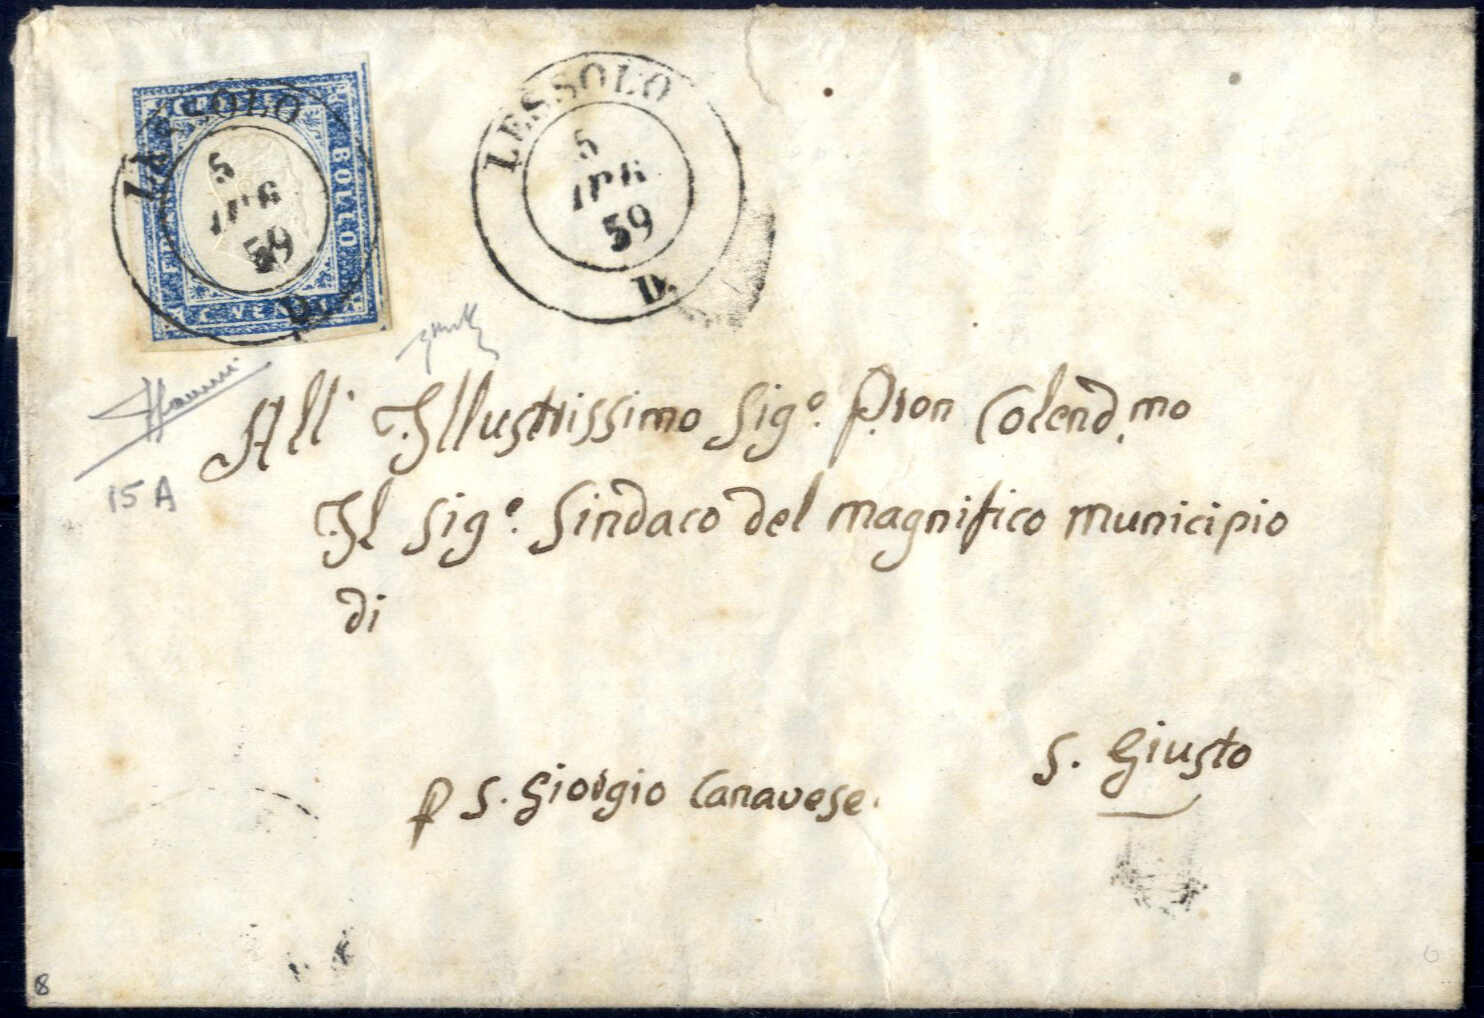 BOLLO
LESSOLO
5
APR
59
D.
LESSOLO
5
APR
59
D.
15 A
All' Illustrissimo Sig.e P.ron Colend.mo
Il Sig.e Sindaco del magnifico municipio
di
S. Giusto
p S. Giorgio Canavese.
8
6